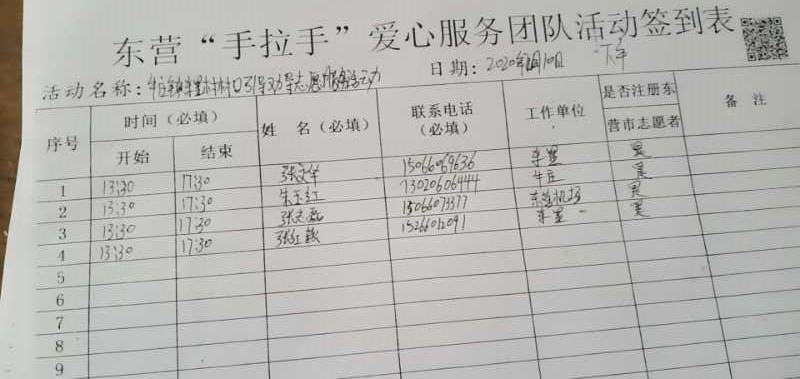 东营“手拉手”爱心服务团队活动签到表
活动名称： 日期：2020年 月10日 下午
序号 时间（必填） 姓 名（必填） 联系电话（必填） 工作单位 是否注册东营市志愿者 备 注
开始 结束
1 13:30 17:30 15066069636 是
2 13:30 17:30 朱玉红 13020606444 牛庄 是
3 13:30 17:30 15066073377 是
4 13:30 17:30 张红 15266012091 是
5
6
7
8
9